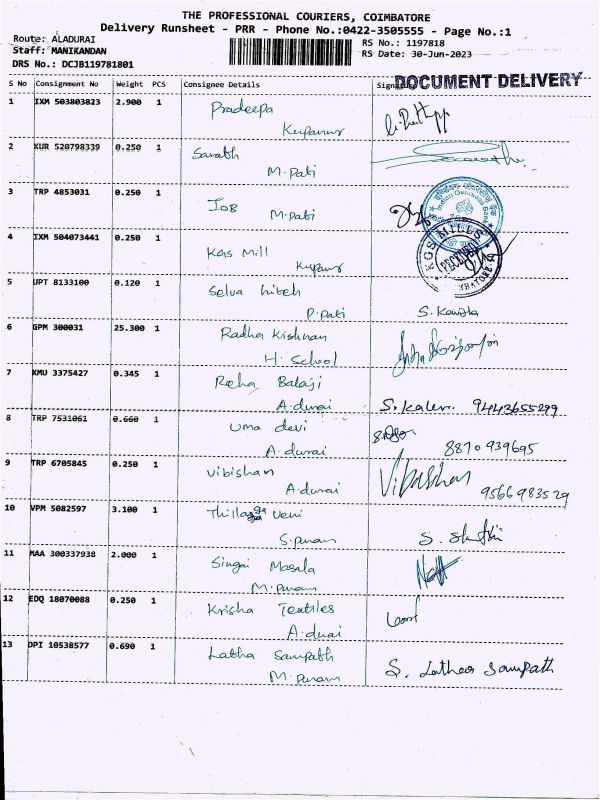 THE PROFESSIONAL COURIERS, COIMBATORE
Delivery Runsheet - PRR - Phone No.:0422-3505555 - Page No.:1
Route: ALADURAI
RS No.: 1197818
Staff: MANIKANDAN
RS Date: 30-Jun-2023
DRS No.: DCJB119781801
DOCUMENT DELIVERY
S No Consignment No Weight PCS Consignee Details
1 IXM 503803823 2.900 1 Pradeepa
2 KUR 520798339 0.250 1 Sarath
M.Pati
3 TRP 4853031 0.250 1 IOB
M.Pati
Indian Overseas Bank
4 IXM 504073441 0.250 1 Kgs Mill
KGS MILLS
RECEIVED
5 UPT 8133100 0.120 1 Selva
P.Pati
6 GPM 300031 25.300 1 Radha Kishnan
H. School
7 KMU 3375427 0.345 1 Balaji
A.durai S.Kaleri 9443655299
8 TRP 7531061 0.660 1 Uma devi
A.durai 8870939695
9 TRP 6705845 0.250 1 Vibishan
A.durai 9566983529
10 VPM 5082597 3.100 1 Veni
S.puram
11 MAA 300337938 2.000 1 Singai Masala
M.Puram
12 EDQ 18070088 0.250 1 Krisha Textiles
A.durai
13 DPI 10538577 0.690 1 Latha Sampath
M.Puram